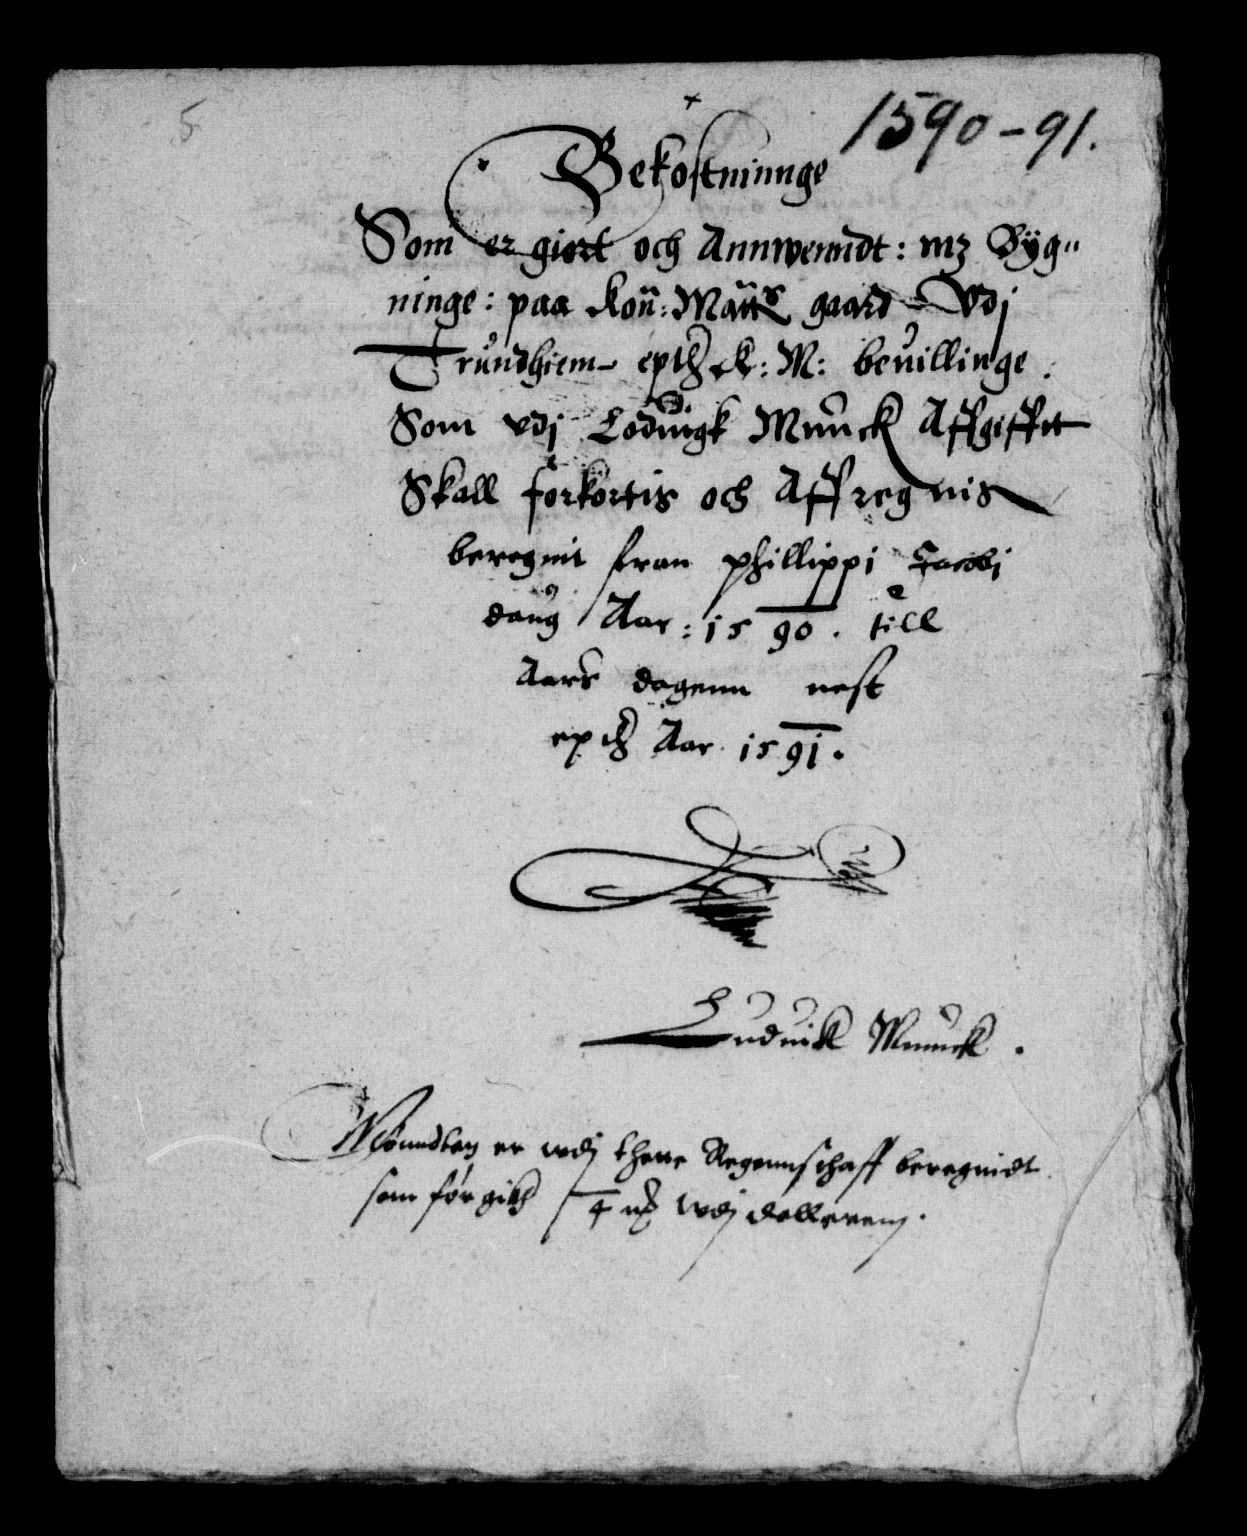 5
1590-91.
Bekostninnge
Som er giort och Annwenndt: mz Byg"
ninge: paa Kon: Matts gaard Vdj
Trundhiem epth K: M: beuillinge.
Som vdj Loduigk Munck Affgifft
Skall forkortis och Affregnis
beregnit fran phillippi Jacobi
daug Aar: 1590. till
Aars dagenn nest
epth Aar 1591.
Luduik Munck.
Mønndten er wdj thene Regennschaff beregnidt
som før gikh wdj dallerenn.